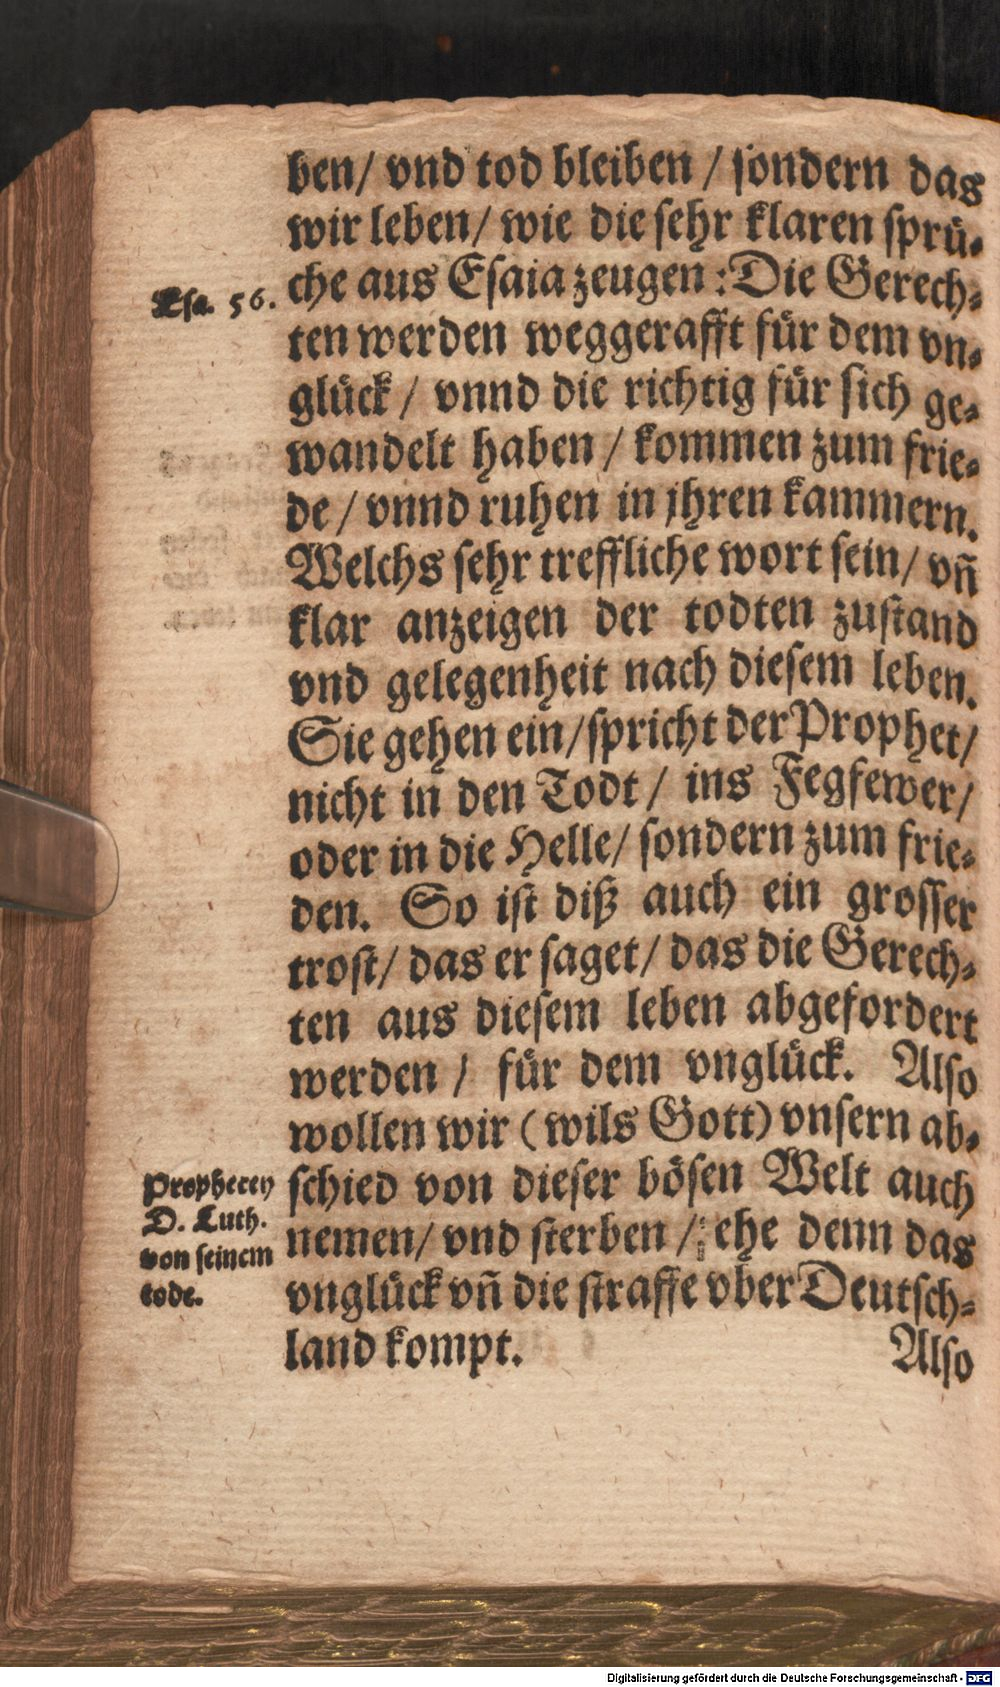 ben/ vnd tod bleiben / sondern das
wir leben/ wie die sehr klaren sprü-
Esa. 56.
che aus Esaia zeugen: Die Gerech-
ten werden weggerafft für dem vn-
glück / vnnd die richtig für sich ge-
wandelt haben / kommen zum frie-
de / vnnd ruhen in jhren kammern.
Welchs sehr treffliche wort sein/ vñ
klar anzeigen der todten zustand
vnd gelegenheit nach diesem leben.
Sie gehen ein/ spricht der Prophet/
nicht in den Todt / ins Fegfewer/
oder in die Helle/ sondern zum frie-
den. So ist diß auch ein grosser
trost/ das er saget/ das die Gerech-
ten aus diesem leben abgefordert
werden / für dem vnglück. Also
wollen wir (wils Gott) vnsern ab-
Prophecey
D. Luth.
von seinem
tode.
schied von dieser bösen Welt auch
nemen/ vnd sterben / ehe denn das
vnglück vñ die straffe vber Deutsch-
land kompt.
Also
Digitalisierung gefördert durch die Deutsche Forschungsgemeinschaft - DFG